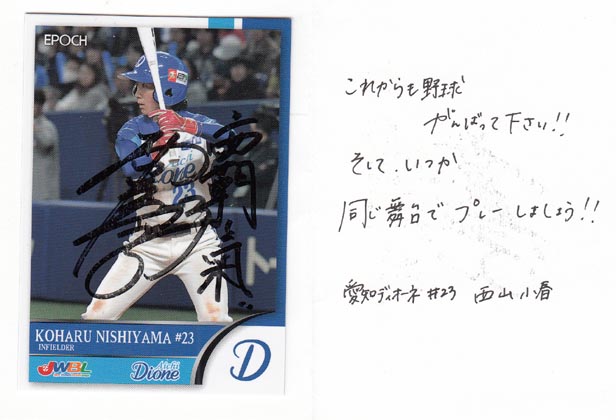 EPOCH
D
23
KOHARU NISHIYAMA #23
INFIELDER
JWBL
Aichi
Dione
D
これからも野球
がんばって下さい!!
そして、いつか
同じ舞台でプレーしましょう!!
愛知ディオーネ #23 西山小春